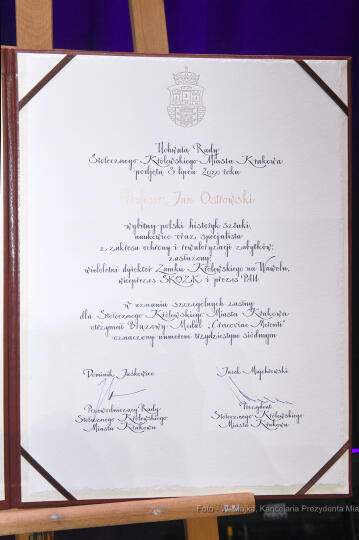 Uchwałą Rady
Stołecznego Królewskiego Miasta Krakowa
podjętą 8 lipca 2020 roku
Profesor Jan Ostrowski
wybitny polski historyk sztuki,
naukowiec oraz specjalista
z zakresu ochrony i rewaloryzacji zabytków;
zasłużony
wieloletni dyrektor Zamku Królewskiego na Wawelu,
wiceprezes SKOZK i prezes PAU
w uznaniu szczególnych zasług
dla Stołecznego Królewskiego Miasta Krakowa
otrzymał Brązowy Medal „Cracoviae Merenti”
oznaczony numerem trzydziestym siódmym
Dominik Jaśkowiec
Jacek Majchrowski
Przewodniczący Rady
Stołecznego Królewskiego
Miasta Krakowa
Prezydent
Stołecznego Królewskiego
Miasta Krakowa
Foto - W. Majka, Kancelaria Prezydenta Mia